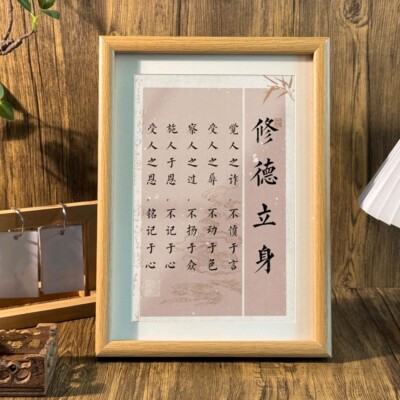 修德立身
觉人之诈，不愤于言
受人之辱，不动于色
察人之过，不扬于众
施人于恩，不记于心
受人之恩，铭记于心